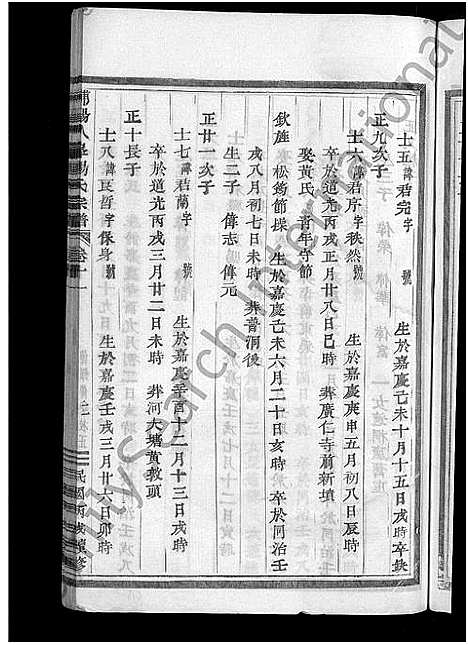 士五諱君完字 號 生於嘉慶己未十月十五日戌時卒缺
正九次子
士六諱君序字秩然號 生於嘉慶庚申五月初八日辰時
卒於道光丙戌正月廿八日巳時 葬廣仁寺前新墳
娶黃氏 青年守節
欽旌 松筠節操 生於嘉慶己未六月二十日亥時 卒於同治壬
戌八月初七日未時 葬普洞後
生二子 偉志 偉元
正廿一次子
士七諱君蘭字 號 生於嘉慶辛酉十二月十三日戌時
卒於道光丙戌三月廿二日未時 葬河大塘黃教頭
正十長子
士八諱良哲字保身號 生於嘉慶壬戌三月廿六日卯時
浦陽人峯楊氏宗譜 卷十一
民國丙戌續修
Family Search International